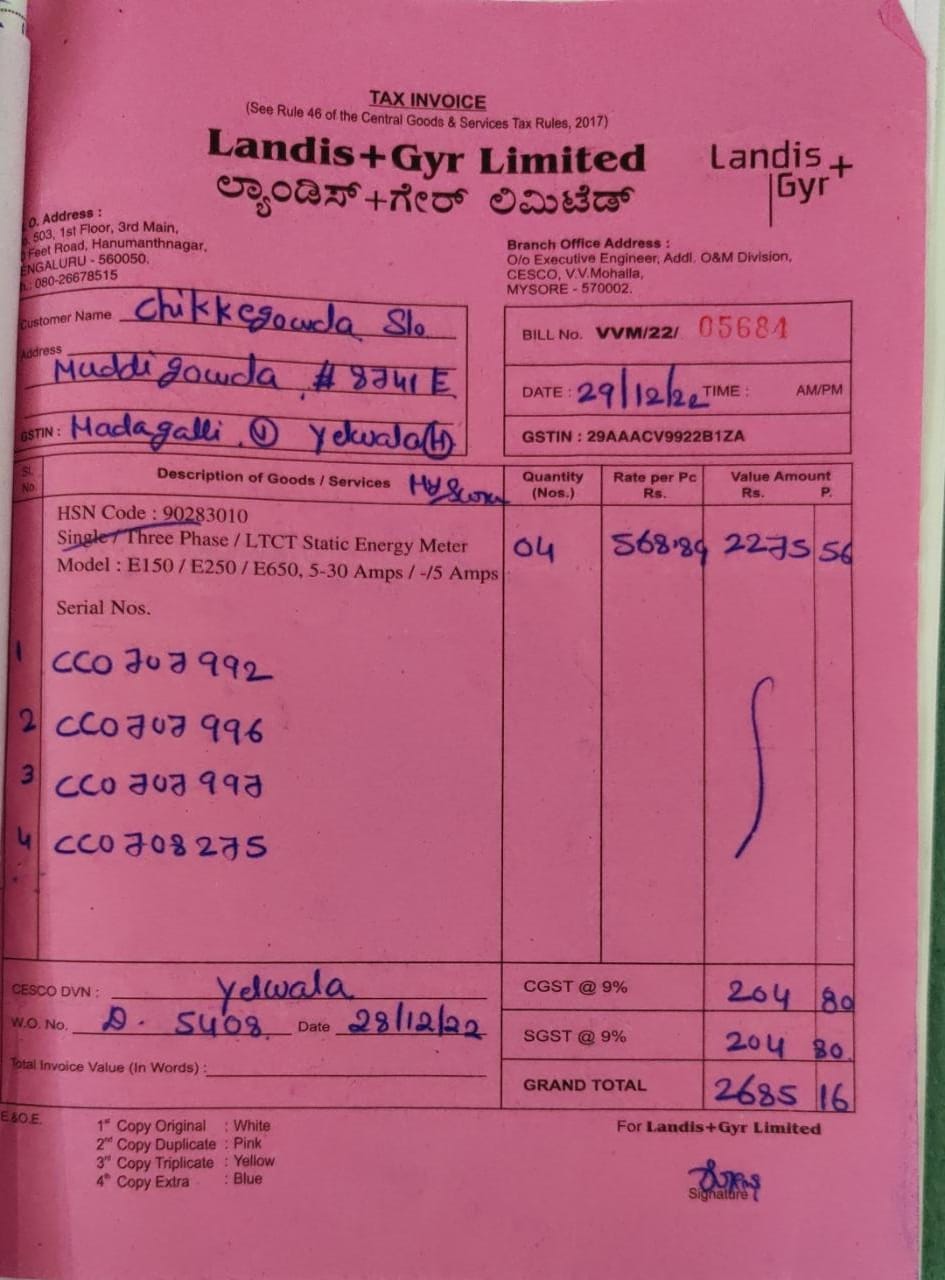 TAX INVOICE
(See Rule 46 of the Central Goods & Services Tax Rules, 2017)
Landis+Gyr Limited
ಲ್ಯಾಂಡಿಸ್+ಗೇರ್ ಲಿಮಿಟೆಡ್
Landis+
Gyr
O. Address :
503, 1st Floor, 3rd Main,
Feet Road, Hanumanthnagar,
ENGALURU - 560050.
: 080-26678515
Branch Office Address :
O/o Executive Engineer, Addl. O&M Division,
CESCO, V.V.Mohalla,
MYSORE - 570002.
Customer Name Chikkegowda S/o
Address
Muddigowda # 8741 E
GSTIN : Madagalli (V) Yelwala (H)
BILL No. VVM/22/ 05684
DATE : 29/12/22 TIME : AM/PM
GSTIN : 29AAACV9922B1ZA
Sl. No. Description of Goods / Services Quantity (Nos.) Rate per Pc Rs. Value Amount Rs. P.
HSN Code : 90283010
Single / Three Phase / LTCT Static Energy Meter 04 568.89 2275 56
Model : E150 / E250 / E650, 5-30 Amps / -/5 Amps
Serial Nos.
1 CC0707992
2 CC0707996
3 CC0707997
4 CC0708275
CESCO DVN : Yelwala
W.O. No. D. 5408 Date 28/12/22
Total Invoice Value (In Words) :
CGST @ 9% 204 80
SGST @ 9% 204 80
GRAND TOTAL 2685 16
E&O.E.
1st Copy Original : White
2nd Copy Duplicate : Pink
3rd Copy Triplicate : Yellow
4th Copy Extra : Blue
For Landis+Gyr Limited
Signature